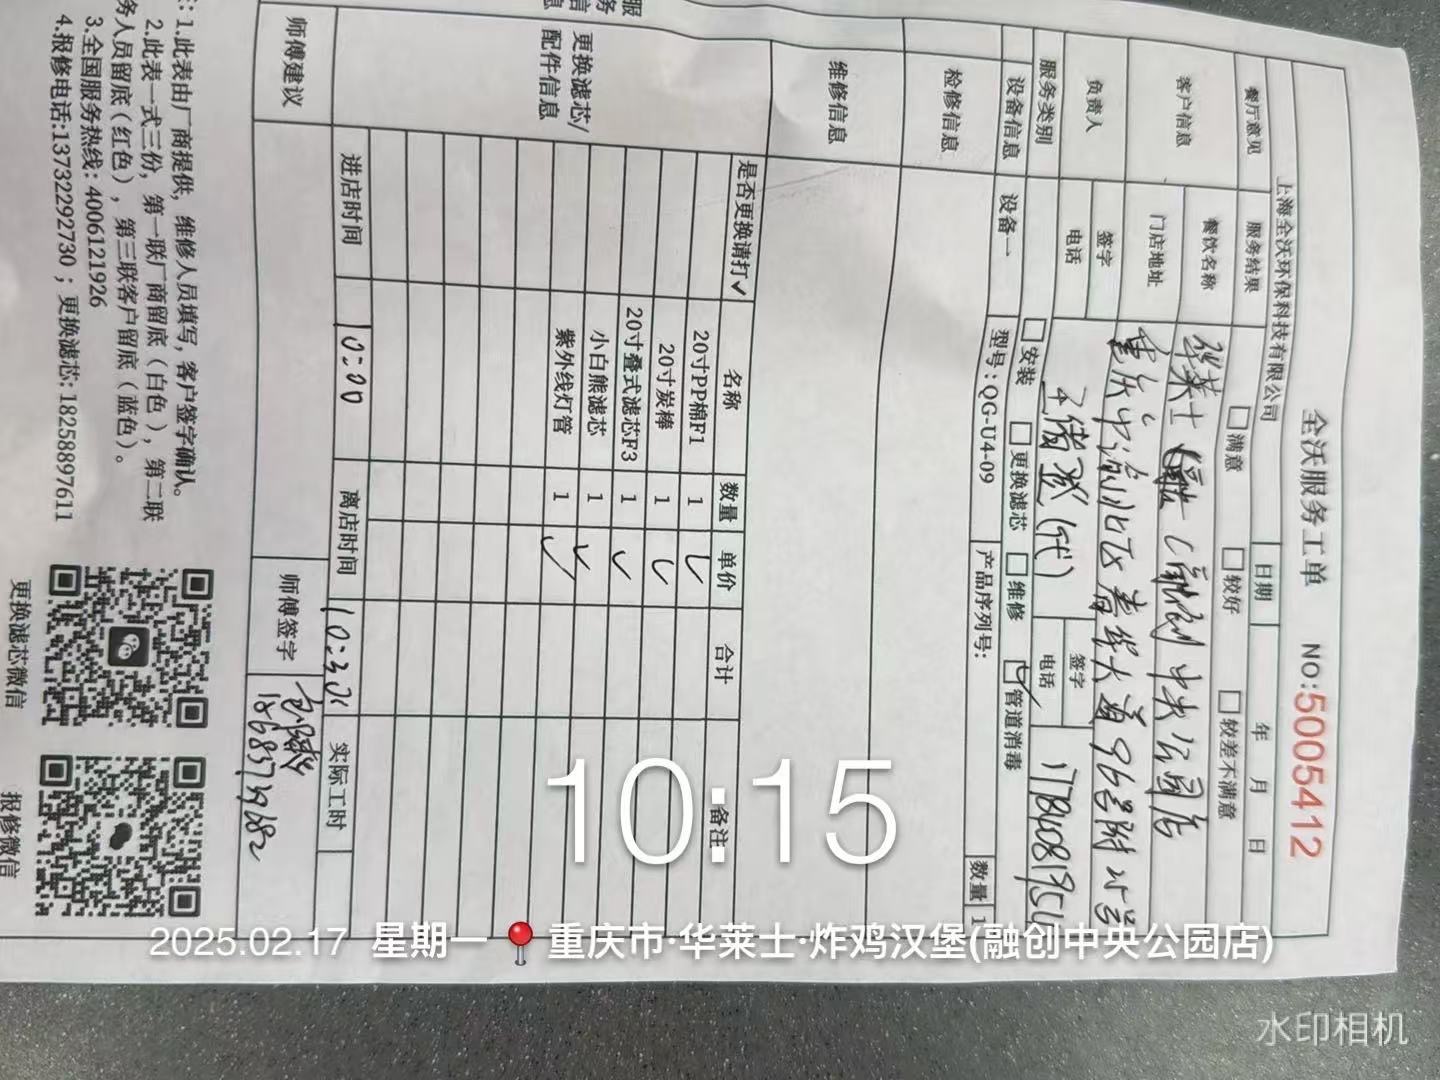 全沃服务工单 NO:5005412
上海全沃环保科技有限公司 日期 年 月 日
餐厅意见 服务结果 □满意 □较好 □较差不满意
客户信息 餐饮名称 华莱士 融创中央公园店
门店地址 重庆市渝北区春华大道96号附25号
负责人 签字 签字
电话 电话
服务类别 □安装 □更换滤芯 □维修 ☑管道消毒
设备信息 设备一 型号:QG-U4-09 产品序列号: 数量 1
检修信息
维修信息
更换滤芯/配件信息
是否更换请打✓ 名称 数量 单价 合计 备注
20寸PP棉F1 1 ✓
20寸炭棒 1 ✓
20寸叠式滤芯F3 1 ✓
小白熊滤芯 1 ✓
紫外线灯管 1 ✓
进店时间 10:00 离店时间 10:30 实际工时
师傅建议 师傅签字
1.此表由厂商提供,维修人员填写,客户签字确认。
2.此表一式三份,第一联厂商留底(白色),第二联
务人员留底(红色),第三联客户留底(蓝色)。
3.全国服务热线:4006121926
4.报修电话:13732292730;更换滤芯:18258897611
更换滤芯微信
报修微信
10:15
2025.02.17 星期一 重庆市·华莱士·炸鸡汉堡(融创中央公园店)
水印相机